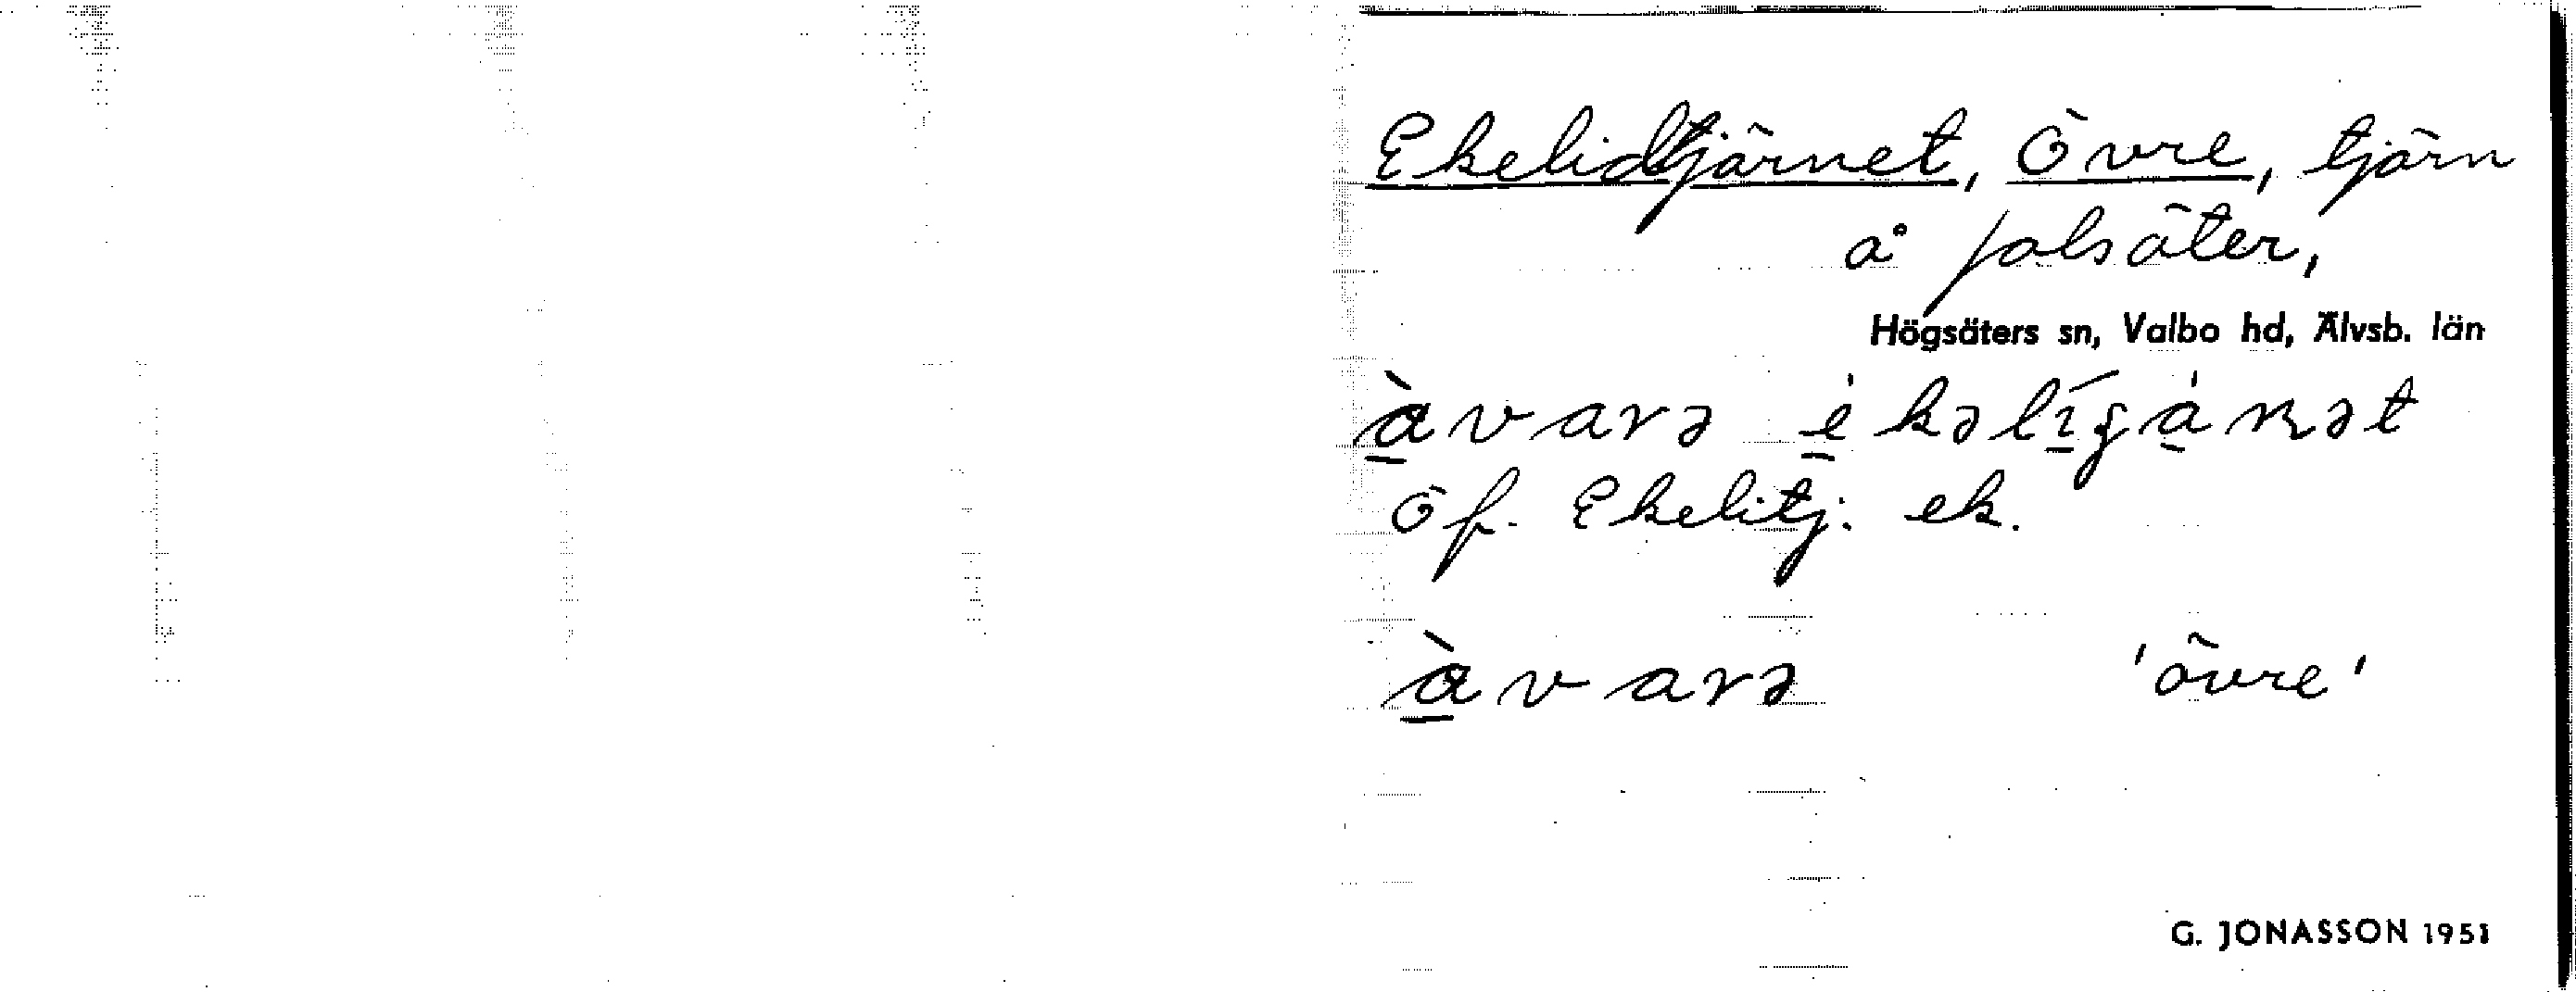 Ekelidtjärnet, Övre, tjärn
å Jolsäter,
Högsäters sn, Valbo hd, Älvsb. län
àvarə
Öf. Ekelitj. ek.
àvarə 'övre'
G. JONASSON 1951